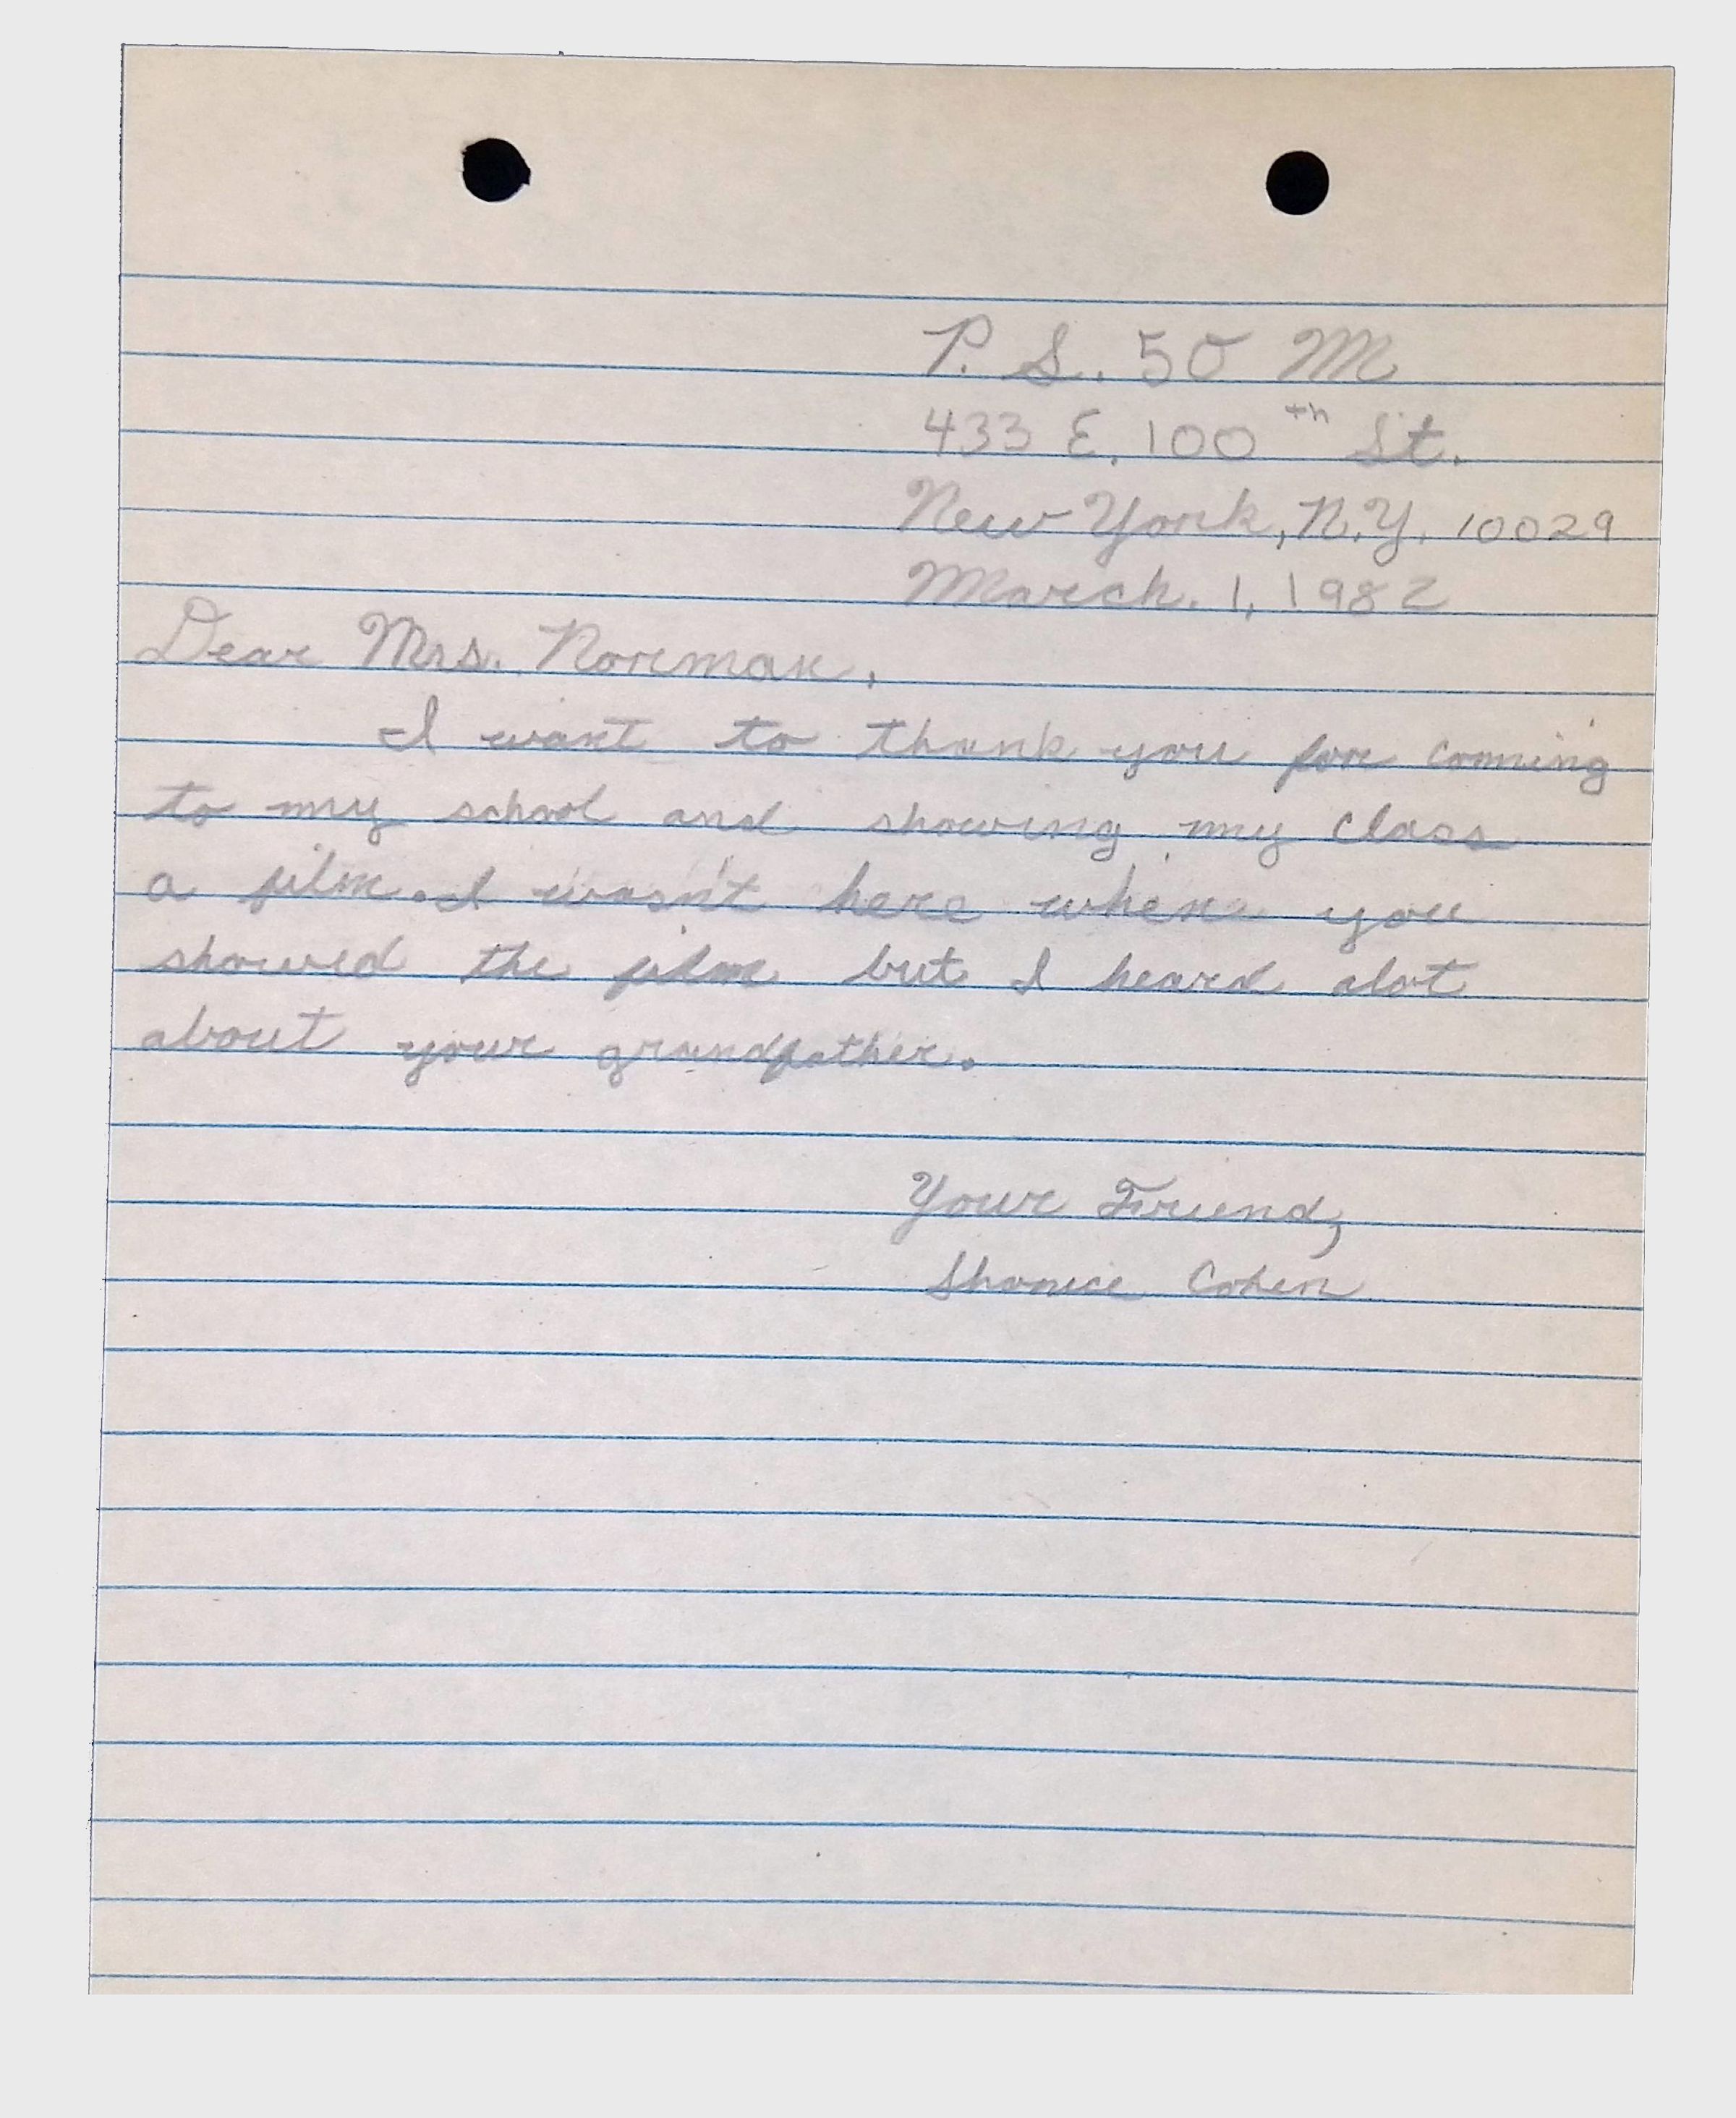 P. S. 50 M
433 E. 100th St.
New York, N.Y. 10029
March. 1, 1982
Dear Mrs. Norman,
I want to thank you for coming
to my school and showing my class
a film. I wasn't here when you
showed the film but I heard alot
about your grandfather.
Your Friend,
Shanice Cohen